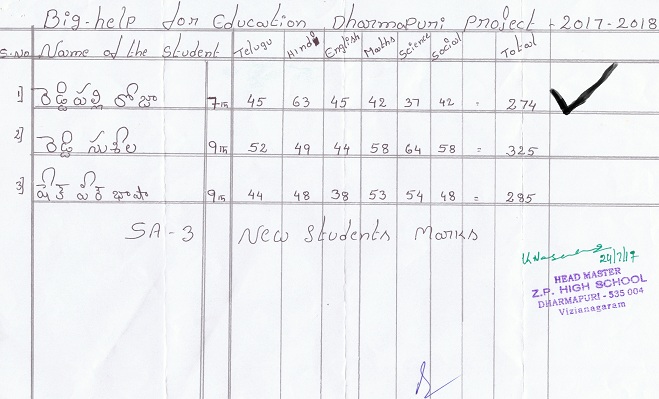 Big-help for Education Dharmapuri Project - 2017-2018
S.No Name of the Student Telugu Hindi English Maths Science Social Total
1] రెడ్డిపల్లి రోజా 7th 45 63 45 42 37 42 = 274
2] రెడ్డి సుశీల 9th 52 49 44 58 64 58 = 325
3] షేక్ పీర్ బాషా 9th 44 48 38 53 54 48 = 285
SA-3 New Students Marks
24/7/17
HEAD MASTER
Z.P. HIGH SCHOOL
DHARMAPURI - 535 004
Vizianagaram